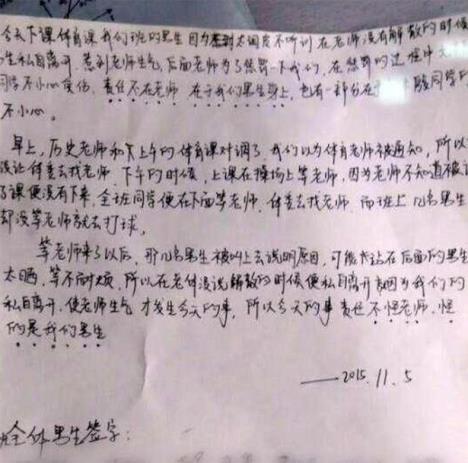 今天下课体育课我们班的男生因为太调皮不听训 在老师没有解散的时候
生私自离开.惹到老师生气,后面老师为了惩罚一下我们,在惩罚的过程中
同学不小心受伤,责任不在老师 在于我们男生身上,也有一部分在 同学的
不小心。
早上,历史老师和下上午的体育课对调了.我们以为体育老师被通知,所以
没让体委去找老师.下午的时候,上课在操场上等老师,因为老师不知道被
了课便没有下来,全班同学便在下面等老师,体委去找老师.而班上几名男生
却没等老师就去打球。
等老师来了以后,那几名男生被叫上去说明原因,可能太站在后面的男生
太晒,等不耐烦,所以在老师没说解散的时候便私自离开.因为我们的
私自离开,使老师生气 才发生今天的事,所以今天的事责任不怪老师,怪
的是我们男生
——2015.11.5
全体男生签字: